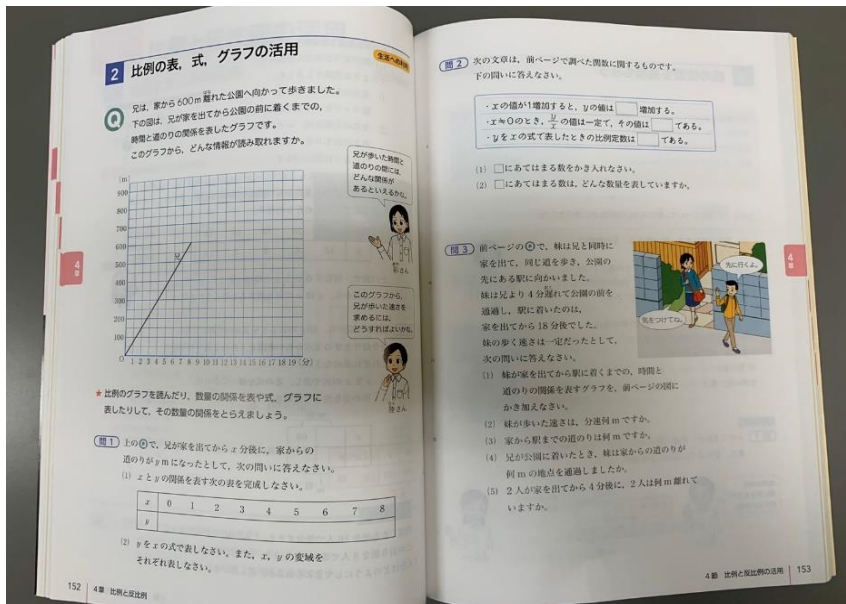 2 比例の表，式，グラフの活用
生活への利用
Q
兄は，家から600m離れた公園へ向かって歩きました。
下の図は，兄が家を出てから公園の前に着くまでの，
時間と道のりの関係を表したグラフです。
このグラフから，どんな情報が読み取れますか。
(m)
900
800
700
600
500
400
300
200
100
0
1 2 3 4 5 6 7 8 9 10 11 12 13 14 15 16 17 18 19 (分)
兄
兄が歩いた時間と
道のりの間には，
どんな関係が
あるといえるかな。
彩さん
このグラフから，
兄が歩いた速さを
求めるには，
どうすればよいかな。
陸さん
★ 比例のグラフを読んだり，数量の関係を表や式，グラフに
表したりして，その数量の関係をとらえましょう。
問1 上のQで，兄が家を出てからx分後に，家からの
道のりがymになったとして，次の問いに答えなさい。
(1) xとyの関係を表す次の表を完成しなさい。
x 0 1 2 3 4 5 6 7 8
y
(2) yをxの式で表しなさい。また，x，yの変域を
それぞれ表しなさい。
152 4章 比例と反比例
4章
問2 次の文章は，前ページで調べた関数に関するものです。
下の問いに答えなさい。
・xの値が1増加すると，yの値は□増加する。
・x≠0のとき，y/xの値は一定で，その値は□である。
・yをxの式で表したときの比例定数は□である。
(1) □にあてはまる数をかき入れなさい。
(2) □にあてはまる数は，どんな数量を表していますか。
問3 前ページのQで，妹は兄と同時に
家を出て，同じ道を歩き，公園の
先にある駅に向かいました。
妹は兄より4分遅れて公園の前を
通過し，駅に着いたのは，
家を出てから18分後でした。
妹の歩く速さは一定だったとして，
次の問いに答えなさい。
先に行くよ。
気をつけてね。
(1) 妹が家を出てから駅に着くまでの，時間と
道のりの関係を表すグラフを，前ページの図に
かき加えなさい。
(2) 妹が歩いた速さは，分速何mですか。
(3) 家から駅までの道のりは何mですか。
(4) 兄が公園に着いたとき，妹は家からの道のりが
何mの地点を通過しましたか。
(5) 2人が家を出てから4分後に，2人は何m離れて
いますか。
4章
4節 比例と反比例の活用 153